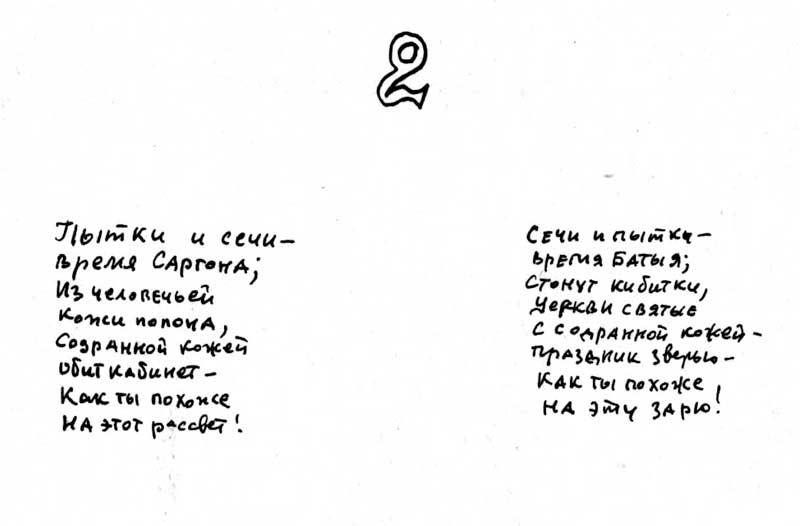 2
Пытки и сечи –
время Саргона;
Из человечьей
кожи попона,
Содранной кожей
обит кабинет –
Как ты похоже
на этот рассвет!
Сечи и пытки –
время Батыя;
Стонут кибитки,
церкви святые
с содранной кожей –
праздник зверью –
как ты похоже
на эту зарю!